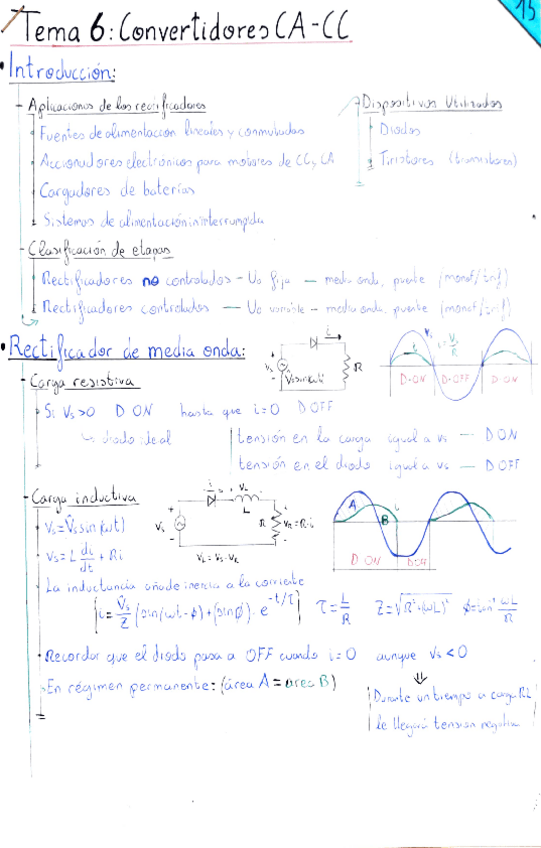 15
Tema 6: Convertidores CA-CC
• Introducción:
- Aplicaciones de los rectificadores
Fuentes de alimentación lineales y conmutadas
Accionadores electrónicos para motores de CC y CA
Cargadores de baterías
Sistemas de alimentación ininterrumpida
Dispositivos Utilizados
Diodos
Tiristores (transistores)
- Clasificación de etapas
Rectificadores no controlados - Uo fija — media onda, puente (monof/trif)
Rectificadores controlados — Uo variable - media onda, puente (monof/trif)
• Rectificador de media onda:
- Carga resistiva
i
Vs
R
Vs
i = Vs/R
D-ON D-OFF D-ON
Si Vs>0 D ON hasta que i=0 D OFF
↳ diodo ideal
tensión en la carga igual a vs — D ON
tensión en el diodo igual a vs — D OFF
- Carga inductiva
i + VL -
L
Vs
R VR=R·i
VL=Vs-VR
A i
B
D ON DOFF
Vs=V̂s sin(ωt)
Vs=L di/dt + Ri
La inductancia añade inercia a la corriente
i=V̂s/Z (sin(ωt-ϕ)+(sinϕ)·e^-t/τ) τ=L/R Z=√R²+(ωL)² ϕ=tan⁻¹ ωL/R
Recordar que el diodo pasa a OFF cuando i=0 aunque Vs<0
⇓
En régimen permanente: (área A = área B)
Durante un tiempo a carga RL
le llegará tensión negativa